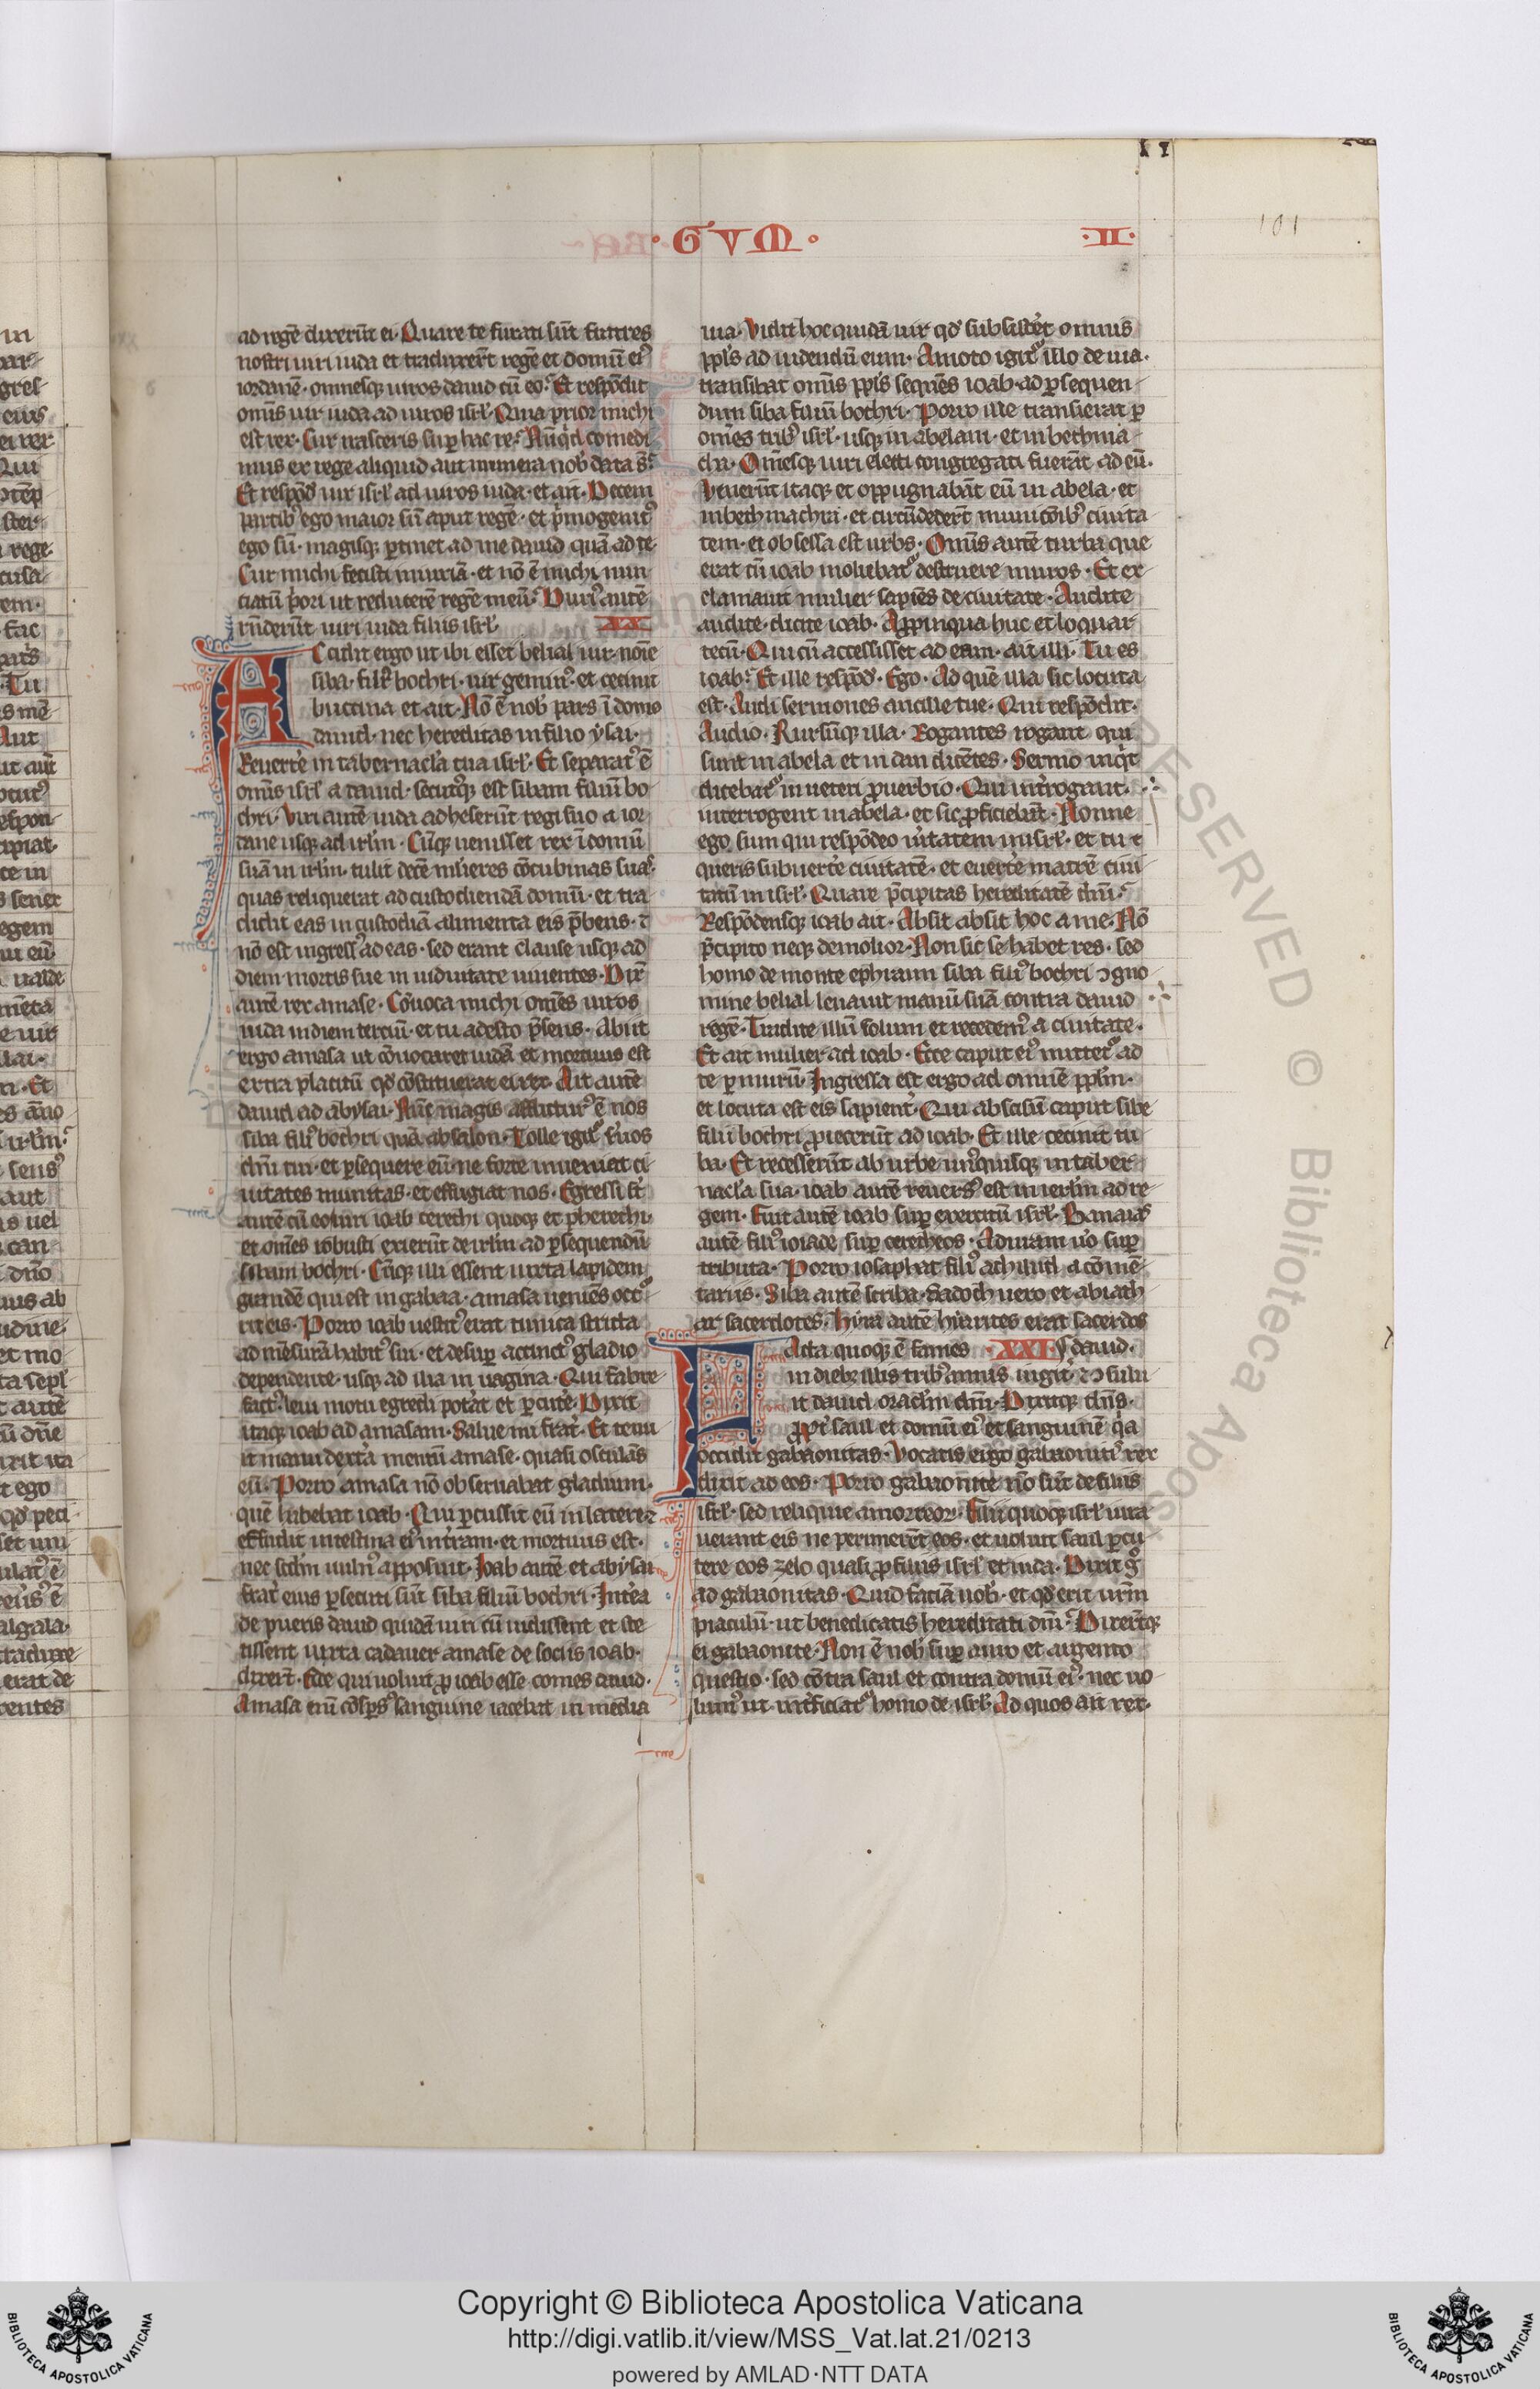 · G V M ·
· II ·
101
ad regē dixerūt ei · Quare te furati sūt fratres
nostri uiri iuda et traduxerūt regē et domū eiꝰ
iordanē · omnesqꝫ uiros dauid cū eo · Et respōdit
omīs uir iuda ad uiros isrl̓ · Quia prior michi
est rex · Cur irasceris suꝑ hac re · Nūqͥd comedi
mus ex rege aliquid aut munera nob̓ data sͭ
Et respōd̓ uir isrl̓ ad uiros iuda · et ait · Decem
partibꝰ ego maior sū aput regē · et pͥmogenitꝰ
ego sū · magisqꝫ ꝑtinet ad me dauid quā ad te
Cur michi fecisti iniuriā · et nō ē michi nun
ciatū pͥori ut reducerē regē meū · Duriꝰ autē
rn̄derūt uiri iuda filiis isrl̓ XX
Accidit ergo ut ibi esset belial uir noīe
siba · filiꝰ bochri · uir geminꝰ · et cecinit
buccina et ait · Nō ē nob̓ pars ī domo
dauid · nec hereditas in filio ysai ·
Reuert̓e in tabernacl̓a tua isrl̓ · Et separatꝰ ē
omīs isrl̓ a dauid · secutꝰqꝫ est sibam filiū bo
chri · Viri autē iuda adheserūt regi suo a ior
dane usqꝫ ad irl̓m · Cūqꝫ uenisset rex ī domū
suā in irl̓m · tulit decē ml̓ieres cōcubinas suas ·
quas reliquerat ad custodiendā domū · et tra
didit eas in custodiā alimenta eis p̄bens · ⁊
nō est ingressꝰ ad eas · sed erant clause usqꝫ ad
diem mortis sue in uiduitate uiuentes · Dix̄
autē rex amase · Cōuoca michi omēs uiros
iuda in diem terciū · et tu adesto p̄sens · Abiit
ergo amasa ut cōuocaret iudā et moratus est
extra placitū qd̓ cōstituerat ei rex · Ait autē
dauid ad abysai · Nūc magis afflicturꝰ ē nos
siba filiꝰ bochri quā absalon · Tolle igitͬ ẜuos
dn̄i tui · et ꝑsequere eū · ne forte inueniat ci
uitates munitas · et effugiat nos · Egressi sͭ
autē cū eo uiri ioab cerethi quoqꝫ et pherethi ·
et omēs robusti exierūt de irl̓m ad ꝑsequendū
sibam bochri · Cūqꝫ illi essent iuxta lapidem
grandē qui est in gabaa · amasa ueniēs occͬ
rit eis · Porro ioab uestitꝰ erat tunica stricta
ad mēsurā habitꝰ sui · et desuꝑ accinctꝰ gladio
dependente · usqꝫ ad ilia in uagina · Qui fabre
factꝰ leui motu egredi pot̓at et ꝑcut̓e · Dixit
itaqꝫ ioab ad amasam · Salue mi frat̓ · Et tenu
it manu dext̓a mentū amase · quasi osculās
eū · Porro amasa nō obseruabat gladium ·
quē habebat ioab · Qui ꝑcussit eū in latere ⁊
effudit intestina eiꝰ in t̓ram · et mortuus est ·
nec scd̓m uulnꝰ apposuit · Ioab autē et abysai
frat̓ eius ꝑsecuti sūt siba filiū bochri · Int̓ea
de pueris dauid quidā uiri cū uidissent et ste
tissent iuxta cadauer amase de sociis ioab ·
dixer̄t · Ecce qui uoluit ꝓ ioab esse comes dauid ·
Amasa enī cōsꝑsꝰ sanguine iacebat in media
uia · Vidit hoc quidā uir qd̓ subsist̓et omnis
ppl̓s ad uidendū eum · Amoto igitͬ illo de uia ·
transibat omīs ppl̓s sequēs ioab · ad ꝑsequen
dum siba filiū bochri · Porro ille transierat ꝑ
omēs tribꝰ isrl̓ · usqꝫ in abelam · et in bethma
cha · Omēsqꝫ uiri electi congregati fuerāt ad eū ·
Venerūt itaqꝫ et oppugnabāt eū in abela · et
in bethmacha · et circūdeder̄t municōibꝰ ciuita
tem · et obsessa est urbs · Omīs autē turba que
erat cū ioab moliebatͬ destruere muros · Et ex
clamauit mulier sapiēs de ciuitate · Audite
audite · dicite ioab · Appinqua huc et loquar
tecū · Qui cū accessisset ad eam · ait illi · Tu es
ioab · Et ille respōd̓ · Ego · Ad quē illa sic locuta
est · Audi sermones ancille tue · Qui respōdit ·
Audio · Rursūqꝫ illa · Rogantes rogant qui
sunt in abela et in dan dicētes · Sermo inqͥt
dicebatͬ in ueteri ꝓuerbio · Qui int̓rogant ·
interrogent in abela · et sic ꝓficiebāt · Nonne
ego sum qui respōdeo ūitatem in isrl̓ · et tu ⁊
queris subuert̓e ciuitatē · et euert̓e matrē ciui
tatū in isrl̓ · Quare p̄cipitas hereditatē dn̄i ·
Respōdensqꝫ ioab ait · Absit absit hoc a me · Nō
p̄cipito neqꝫ demolior · Non sic se habet res · sed
homo de monte ephraim siba filiꝰ bochri ꝯgno
mine belial leuauit manū suā contra dauid
regē · Tradite illū solum et recedemꝰ a ciuitate ·
Et ait mulier ad ioab · Ecce caput eiꝰ mittetͬ ad
te ꝑ murū · Ingressa est ergo ad omnē ppl̓m ·
et locuta est eis sapient̓ · Qui abscisū caput sibe
filii bochri ꝓiecerūt ad ioab · Et ille cecinit tu
ba · Et recesserūt ab urbe unꝰquisqꝫ in taber
nacl̓a sua · ioab autē reuersꝰ est in ierl̓m ad re
gem · Fuit autē ioab suꝑ exercitū isrl̓ · Banaias
autē filiꝰ ioiade suꝑ cerecheos · Aduram uͦo suꝑ
tributa · Porro iosaphat filiꝰ achilud a cōmē
tariis · Siba autē scriba · Sadoch uero et abiath
ar sacerdotes · Hyra autē hiarites erat sacerdos
Facta quoqꝫ ē fames · XXI · dauid ·
in diebꝫ illis tribꝰ annis iugit̓ · ⁊ ꝯsulu
it dauid oracl̓m dn̄i · Dixitqꝫ dn̄s ·
ꝓpt̓ saul et domū eiꝰ et sanguinē qͥa
occidit gabaonitas · Vocatis ergo gabaonitꝰ rex
dixit ad eos · Porro gabaonite nō sūt de filiis
isrl̓ · sed reliquie amorreoꝝ · Filii quoqꝫ isrl̓ iura
uerant eis ne perimer̄t eos · et uoluit saul ꝑcu
tere eos zelo quasi ꝓ filiis isrl̓ et iuda · Dixit gͦ
ad gabaonitas · Quid faciā uob̓ · et qd̓ erit ur̄m
piaculū · ut benedicatis hereditati dn̄i · Dixerūtqꝫ
ei gabaonite · Non ē nob̓ suꝑ auro et argento
questio · sed cōtra saul et contra domū eiꝰ · nec uo
lumꝰ ut int̓ficiatͬ homo de isrl̓ · Ad quos ait rex ·
RESERVED © Biblioteca Apos
Copyright © Biblioteca Apostolica Vaticana
http://digi.vatlib.it/view/MSS_Vat.lat.21/0213
powered by AMLAD·NTT DATA
BIBLIOTECA APOSTOLICA VATICANA
BIBLIOTECA APOSTOLICA VATICANA